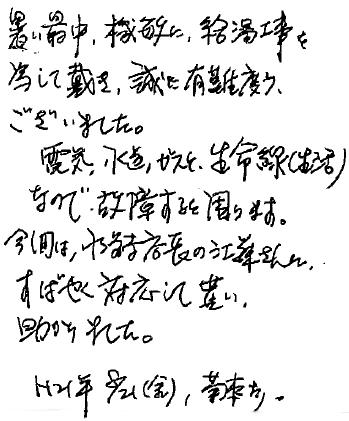 暑い最中、機敏に、給湯工事を
為して戴き、誠に有難度う、
ございました。
電気、水道、ガスを、生命線(生活)
なので、故障すると困ります。
今回は、店長の江華さんに、
すばやく対応して貰い、
助かりました。
H21年 8/21(金)、